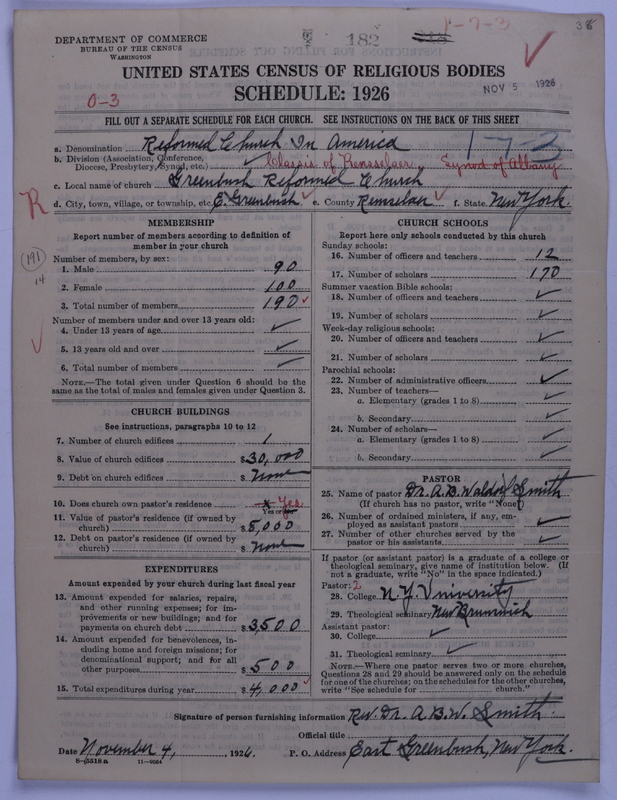 1-7-3
38
182
DEPARTMENT OF COMMERCE
BUREAU OF THE CENSUS
WASHINGTON
UNITED STATES CENSUS OF RELIGIOUS BODIES
SCHEDULE: 1926
NOV 5 1926
0-3
FILL OUT A SEPARATE SCHEDULE FOR EACH CHURCH. SEE INSTRUCTIONS ON THE BACK OF THIS SHEET
1-7-3
a. Denomination Reformed Church In America
b. Division (Association, Conference, Diocese, Presbytery, Synod, etc.) Classis of Rensselaer. Synod of Albany
c. Local name of church Greenbush Reformed Church
d. City, town, village, or township, etc. E. Greenbush e. County Rensselaer f. State New York.
R
191
14
MEMBERSHIP
Report number of members according to definition of
member in your church
Number of members, by sex:
1. Male 90
2. Female 100
3. Total number of members 190
Number of members under and over 13 years old:
4. Under 13 years of age ✓
5. 13 years old and over ✓
6. Total number of members ✓
NOTE.—The total given under Question 6 should be the
same as the total of males and females given under Question 3.
CHURCH BUILDINGS
See instructions, paragraphs 10 to 12
7. Number of church edifices 1
8. Value of church edifices $30,000
9. Debt on church edifices $ None
10. Does church own pastor's residence Yes
Yes or No
11. Value of pastor's residence (if owned by
church) $5,000
12. Debt on pastor's residence (if owned by
church) $ None
EXPENDITURES
Amount expended by your church during last fiscal year
13. Amount expended for salaries, repairs,
and other running expenses; for im-
provements or new buildings; and for
payments on church debt $3,500
14. Amount expended for benevolences, in-
cluding home and foreign missions; for
denominational support; and for all
other purposes $500
15. Total expenditures during year $4,000
CHURCH SCHOOLS
Report here only schools conducted by this church
Sunday schools:
16. Number of officers and teachers 12
17. Number of scholars 170
Summer vacation Bible schools:
18. Number of officers and teachers ✓
19. Number of scholars ✓
Week-day religious schools:
20. Number of officers and teachers ✓
21. Number of scholars ✓
Parochial schools:
22. Number of administrative officers ✓
23. Number of teachers—
a. Elementary (grades 1 to 8) ✓
b. Secondary ✓
24. Number of scholars—
a. Elementary (grades 1 to 8) ✓
b. Secondary ✓
PASTOR
25. Name of pastor Dr. A. B. Waldorf Smith
(If church has no pastor, write "None")
26. Number of ordained ministers, if any, em-
ployed as assistant pastors ✓
27. Number of other churches served by the
pastor or his assistants ✓
If pastor (or assistant pastor) is a graduate of a college or
theological seminary, give name of institution below. (If
not a graduate, write "No" in the space indicated.)
Pastor: 2
28. College N.Y. University
29. Theological seminary New Brunswick
Assistant pastor:
30. College ✓
31. Theological seminary ✓
NOTE.—Where one pastor serves two or more churches,
Questions 28 and 29 should be answered only on the schedule
for one of the churches; on the schedules for the other churches,
write "See schedule for ........ church."
Signature of person furnishing information Rev. Dr. A. B. W. Smith
Official title
Date November 4, 1926. P. O. Address East Greenbush, New York.
8—5518 a 11—9064